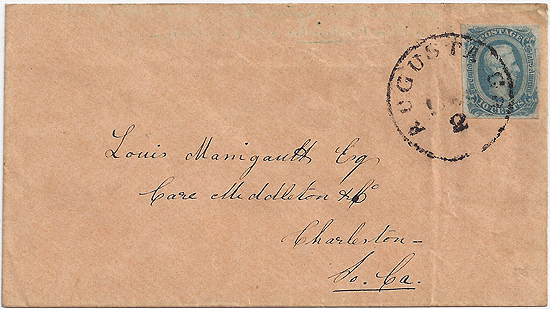 POSTAGE
AUGUSTA GA
2
Louis Manigault Esq
Care Middleton & Co
Charleston
So. Ca.